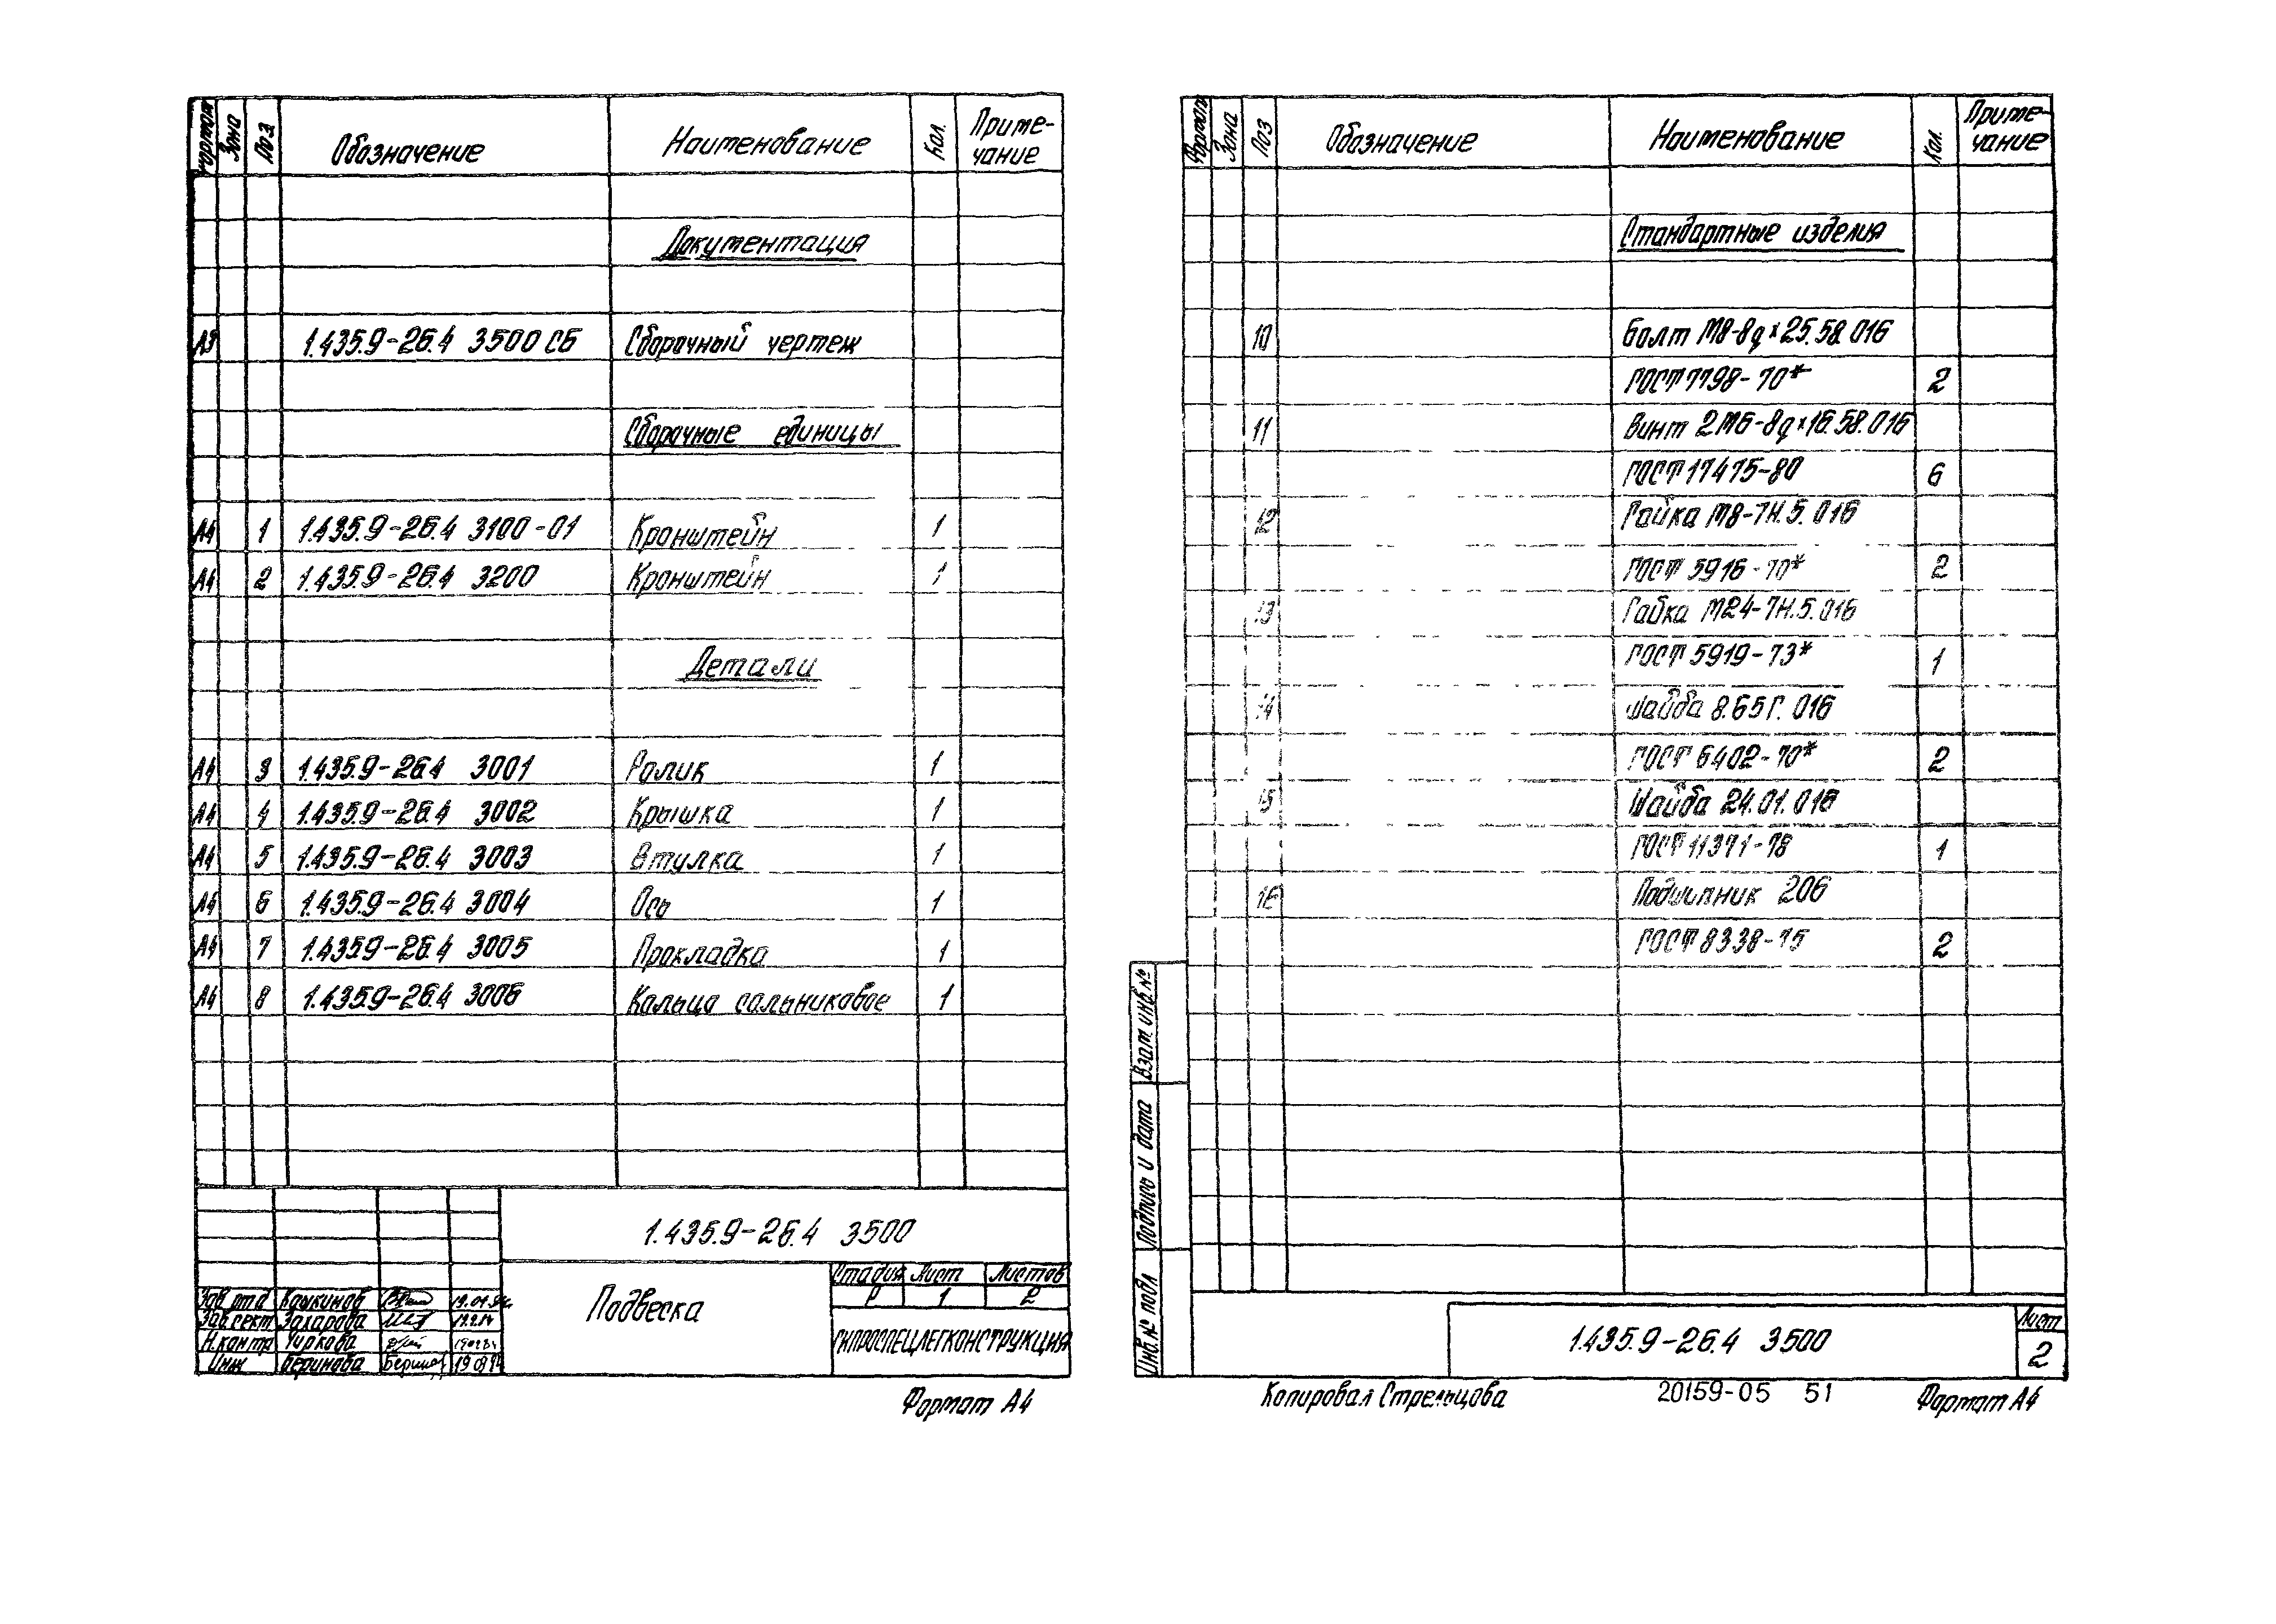 Формат Зона Поз Обозначение Наименование Кол. Приме-
чание
Документация
А3 1.435.9-26.4 3500 СБ Сборочный чертеж
Сборочные единицы
А4 1 1.435.9-26.4 3100-01 Кронштейн 1
А4 2 1.435.9-26.4 3200 Кронштейн 1
Детали
А4 3 1.435.9-26.4 3001 Ролик 1
А4 4 1.435.9-26.4 3002 Крышка 1
А4 5 1.435.9-26.4 3003 Втулка 1
А4 6 1.435.9-26.4 3004 Ось 1
А4 7 1.435.9-26.4 3005 Прокладка 1
А4 8 1.435.9-26.4 3006 Кольцо сальниковое 1
1.435.9-26.4 3500
Подвеска
Стадия Лист Листов
Р 1 2
ГИПРОСПЕЦЛЕГКОНСТРУКЦИЯ
Зав отд
Зав.сект Захарова
Н.контр Чиркова
Инж Беринова
Формат А4
Формат Зона Поз Обозначение Наименование Кол. Приме-
чание
Стандартные изделия
10 Болт М8-8g×25.58.016
ГОСТ 7798-70* 2
11 Винт 2М6-8g×16.58.016
ГОСТ 17475-80 6
12 Гайка М8-7Н.5.016
ГОСТ 5916-70* 2
13 Гайка М24-7Н.5.016
ГОСТ 5919-73* 1
14 Шайба 8.65Г.016
ГОСТ 6402-70* 2
15 Шайба 24.01.016
ГОСТ 11371-78 1
16 Подшипник 206
ГОСТ 8338-75 2
Взам. инв.№
Подпись и дата
Инв.№ подл
1.435.9-26.4 3500
Лист
2
Копировал Стрельцова 20159-05 51 Формат А4